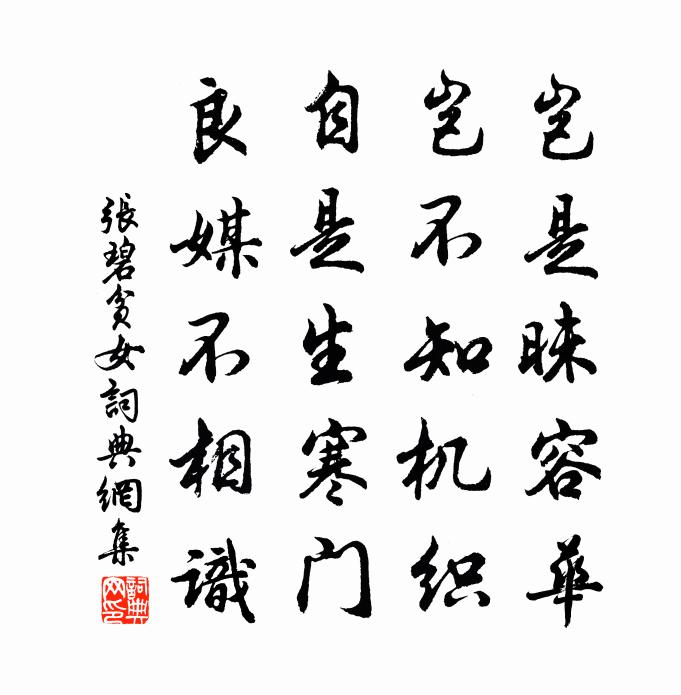 岂是昧容华
岂不知机织
自是生寒门
良媒不相識
張碧貧女詞典網集
詞典网印